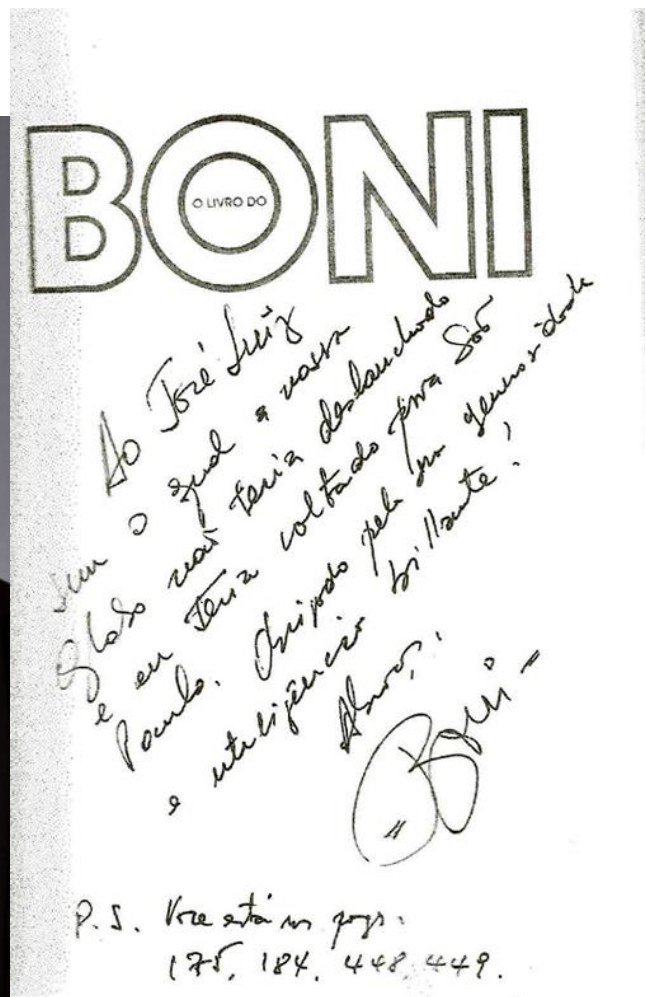 BONI
O LIVRO DO
Ao José Luiz
sem o qual a nossa
Globo não teria deslanchado
e eu teria voltado para São
Paulo. Obrigado pela sua generosidade
e inteligência brilhante!
Abraços,
Boni
P.S. Você está nas pags.
175, 184, 448, 449.